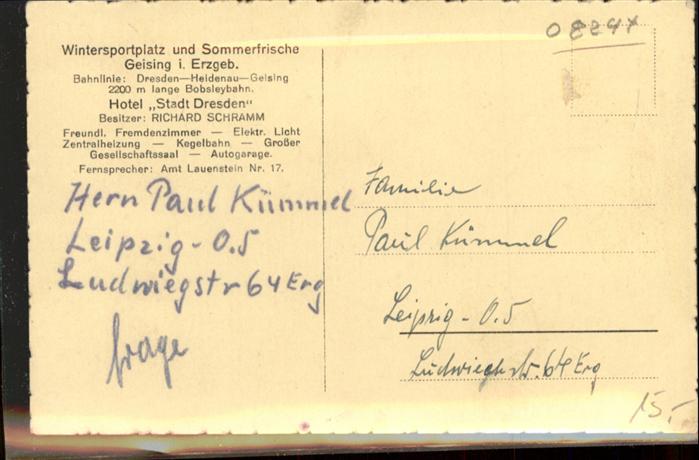 Wintersportplatz und Sommerfrische
Geising i. Erzgeb.
Bahnlinie: Dresden—Heidenau—Geising
2200 m lange Bobsleybahn.
Hotel „Stadt Dresden“
Besitzer: RICHARD SCHRAMM
Freundl. Fremdenzimmer — Elektr. Licht
Zentralheizung — Kegelbahn — Großer
Gesellschaftssaal — Autogarage.
Fernsprecher: Amt Lauenstein Nr. 17.
Herrn Paul Kümmel
Leipzig - O.5
Ludwiegstr 64 Erg
frage
Familie
Paul Kümmel
Leipzig - O.5
Ludwiegstr. 64 Erg
15,-